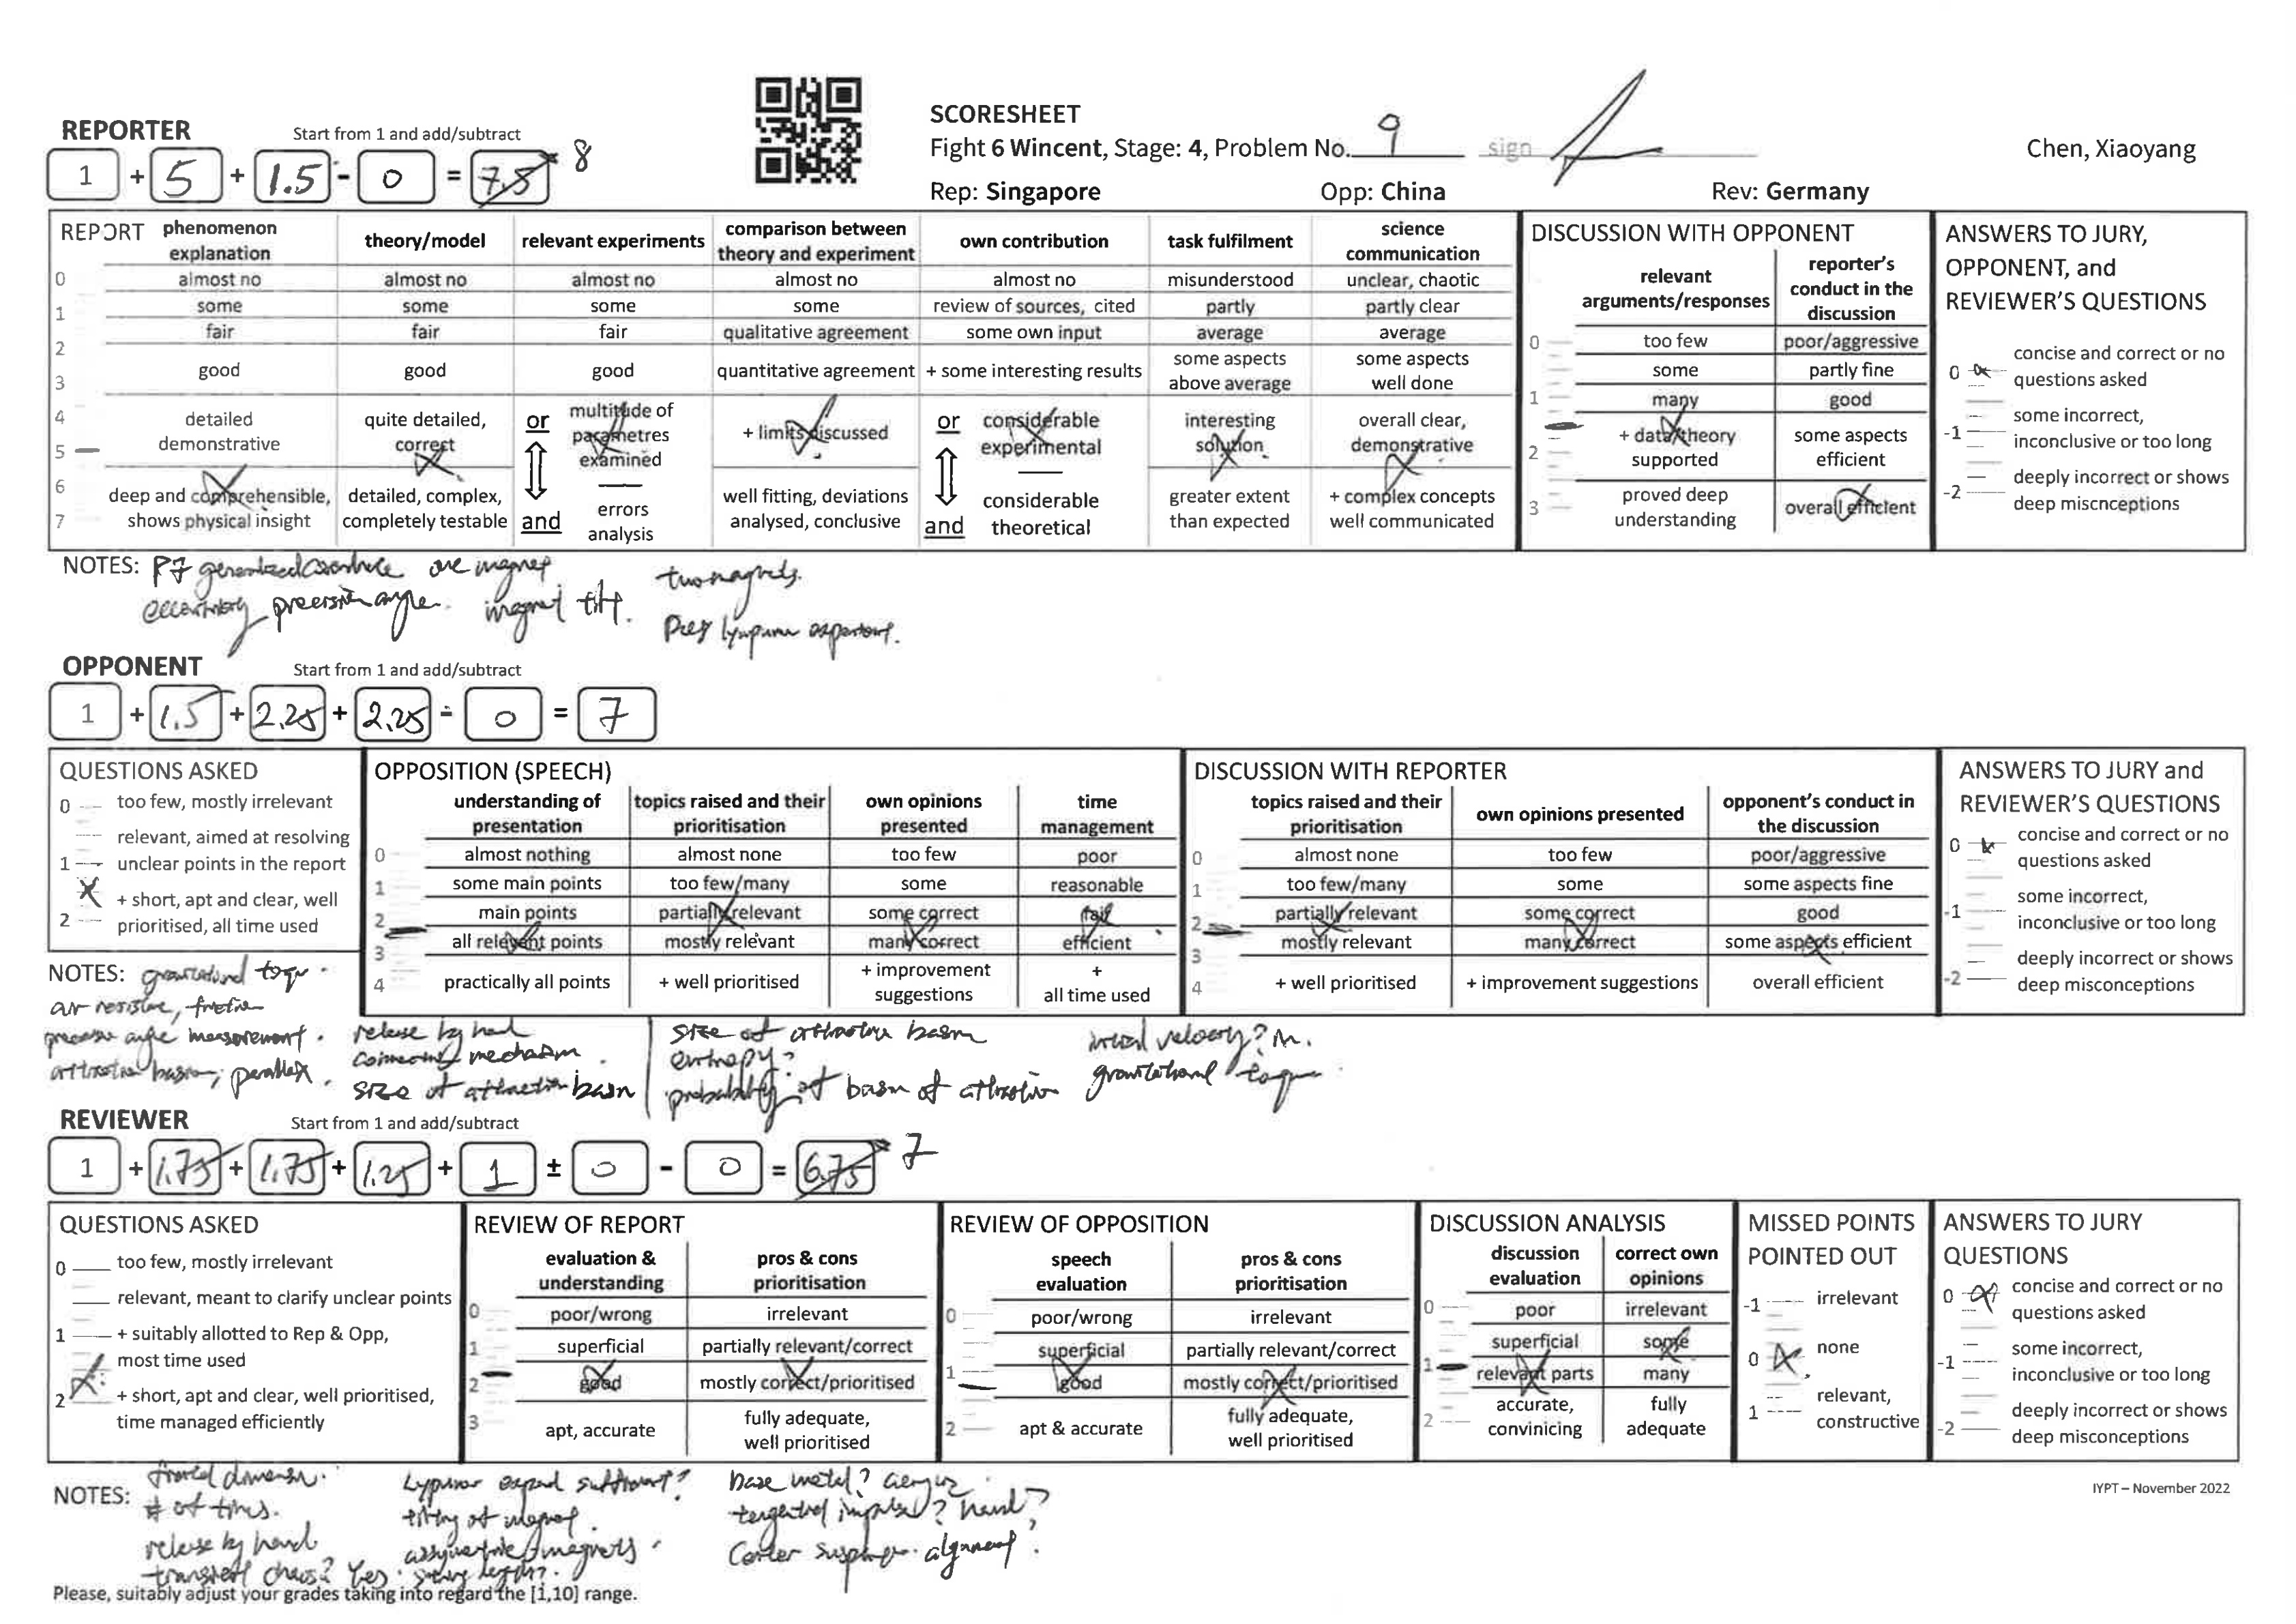 SCORESHEET
REPORTER Start from 1 and add/subtract
Fight 6 Wincent, Stage: 4, Problem No. 9 sign
Chen, Xiaoyang
1 + 5 + 1.5 - 0 = 7.5 8
Rep: Singapore Opp: China Rev: Germany
REPORT
phenomenon explanation
theory/model
relevant experiments
comparison between theory and experiment
own contribution
task fulfilment
science communication
0 almost no almost no almost no almost no almost no misunderstood unclear, chaotic
1 some some some some review of sources, cited partly partly clear
2 fair fair fair qualitative agreement some own input average average
3 good good good quantitative agreement + some interesting results some aspects above average some aspects well done
4 detailed demonstrative quite detailed, correct or multitude of parametres examined + limits discussed or considerable experimental interesting solution overall clear, demonstrative
5
6 deep and comprehensible, shows physical insight detailed, complex, completely testable and errors analysis well fitting, deviations analysed, conclusive and considerable theoretical greater extent than expected + complex concepts well communicated
7
DISCUSSION WITH OPPONENT
relevant arguments/responses
reporter's conduct in the discussion
0 too few poor/aggressive
some partly fine
1 many good
2 + data/theory supported some aspects efficient
3 proved deep understanding overall efficient
ANSWERS TO JURY, OPPONENT, and REVIEWER'S QUESTIONS
0 concise and correct or no questions asked
-1 some incorrect, inconclusive or too long
-2 deeply incorrect or shows deep miscnceptions
NOTES: one magnet two magnets.
precession angle. magnet tilt.
OPPONENT Start from 1 and add/subtract
1 + 1.5 + 2.25 + 2.25 - 0 = 7
QUESTIONS ASKED
0 too few, mostly irrelevant
relevant, aimed at resolving
1 unclear points in the report
+ short, apt and clear, well
2 prioritised, all time used
OPPOSITION (SPEECH)
understanding of presentation
topics raised and their prioritisation
own opinions presented
time management
0 almost nothing almost none too few poor
1 some main points too few/many some reasonable
2 main points partially relevant some correct fair
3 all relevant points mostly relevant many correct efficient
4 practically all points + well prioritised + improvement suggestions + all time used
DISCUSSION WITH REPORTER
topics raised and their prioritisation
own opinions presented
opponent's conduct in the discussion
0 almost none too few poor/aggressive
1 too few/many some some aspects fine
2 partially relevant some correct good
3 mostly relevant many correct some aspects efficient
4 + well prioritised + improvement suggestions overall efficient
ANSWERS TO JURY and REVIEWER'S QUESTIONS
0 concise and correct or no questions asked
-1 some incorrect, inconclusive or too long
-2 deeply incorrect or shows deep misconceptions
NOTES:
release by hand
size of attraction basin
size of attraction basin
entropy?
probability of basin of attraction
initial velocity?
gravitational
REVIEWER Start from 1 and add/subtract
1 + 1.75 + 1.75 + 1.25 + 1 ± 0 - 0 = 6.75 7
QUESTIONS ASKED
0 too few, mostly irrelevant
relevant, meant to clarify unclear points
1 + suitably allotted to Rep & Opp, most time used
2 + short, apt and clear, well prioritised, time managed efficiently
REVIEW OF REPORT
evaluation & understanding
pros & cons prioritisation
0 poor/wrong irrelevant
1 superficial partially relevant/correct
2 good mostly correct/prioritised
3 apt, accurate fully adequate, well prioritised
REVIEW OF OPPOSITION
speech evaluation
pros & cons prioritisation
0 poor/wrong irrelevant
superficial partially relevant/correct
1 good mostly correct/prioritised
2 apt & accurate fully adequate, well prioritised
DISCUSSION ANALYSIS
discussion evaluation
correct own opinions
0 poor irrelevant
superficial some
1 relevant parts many
2 accurate, convinicing fully adequate
MISSED POINTS POINTED OUT
-1 irrelevant
0 none
1 relevant, constructive
ANSWERS TO JURY QUESTIONS
0 concise and correct or no questions asked
-1 some incorrect, inconclusive or too long
-2 deeply incorrect or shows deep misconceptions
IYPT – November 2022
NOTES:
# of times.
release by hand
chaos? Yes.
tilting of magnet.
magnets.
base metal?
hand?
alignment?
Please, suitably adjust your grades taking into regard the [1,10] range.